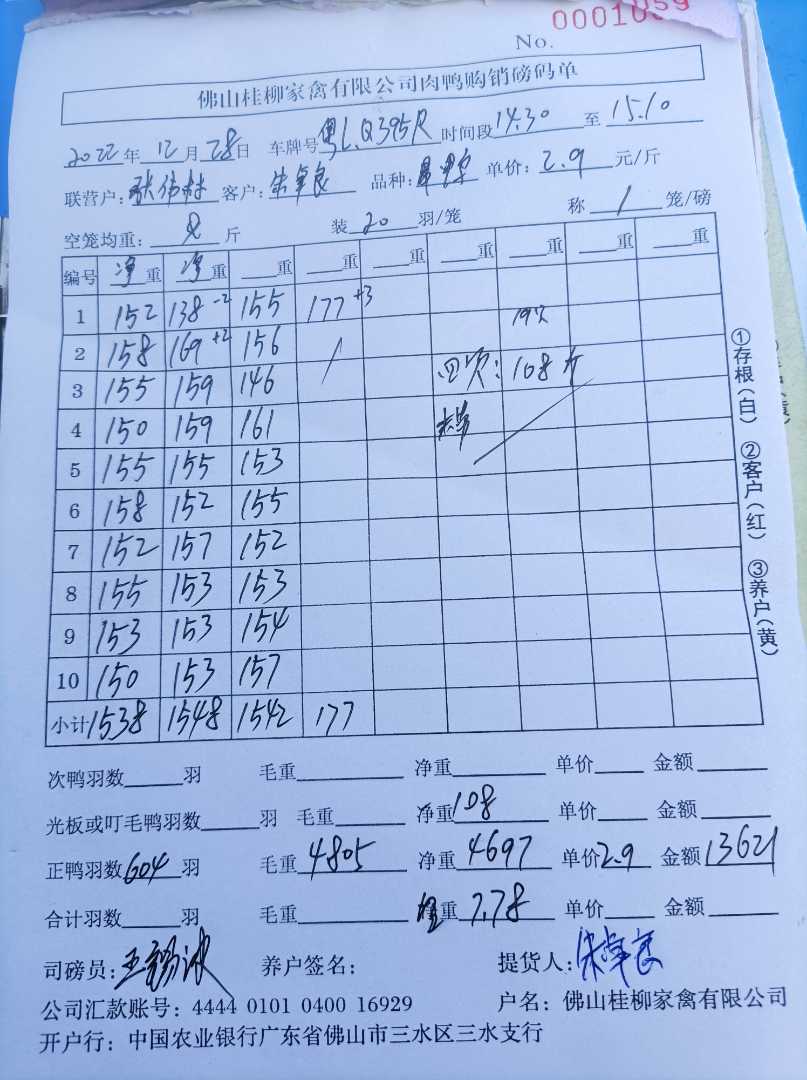 No. 0001059
佛山桂柳家禽有限公司肉鸭购销磅码单
2022年12月28日 车牌号粤L.Q395R时间段14.30至15.10
联营户: 客户:朱卓良 品种: 单价:2.9元/斤
空笼均重: 斤 装20羽/笼 称1笼/磅
编号 净重 净重 重 重 重 重 重 重 重
1 152 138 -2 155 177 +3 19只
2 158 169 +2 156 / 四次:108斤
3 155 159 146
4 150 159 161
5 155 155 153
6 158 152 155
7 152 157 152
8 155 153 153
9 153 153 154
10 150 153 157
小计 1538 1548 1542 177
①存根(白) ②客户(红) ③养户(黄)
次鸭羽数 羽 毛重 净重 单价 金额
光板或叮毛鸭羽数 羽 毛重 净重108 单价 金额
正鸭羽数604羽 毛重4805 净重4697 单价2.9 金额13621
合计羽数 羽 毛重 重7.78 单价 金额
司磅员: 养户签名: 提货人:朱卓良
公司汇款账号:4444 0101 0400 16929 户名:佛山桂柳家禽有限公司
开户行:中国农业银行广东省佛山市三水区三水支行